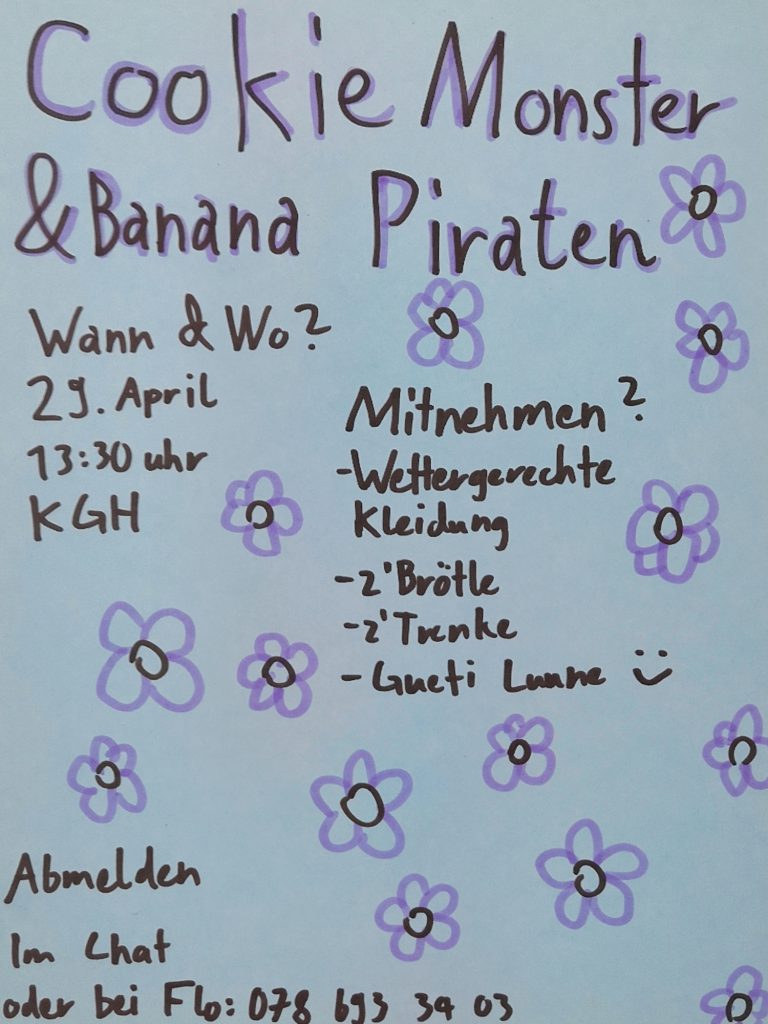 Cookie Monster
& Banana Piraten
Wann & Wo?
29. April
13:30 uhr
KGH
Mitnehmen?
-Wettergerechte
Kleidung
-z'Brötle
-z'Trenke
-Gueti Luune
Abmelden
Im Chat
oder bei Flo: 078 693 34 03